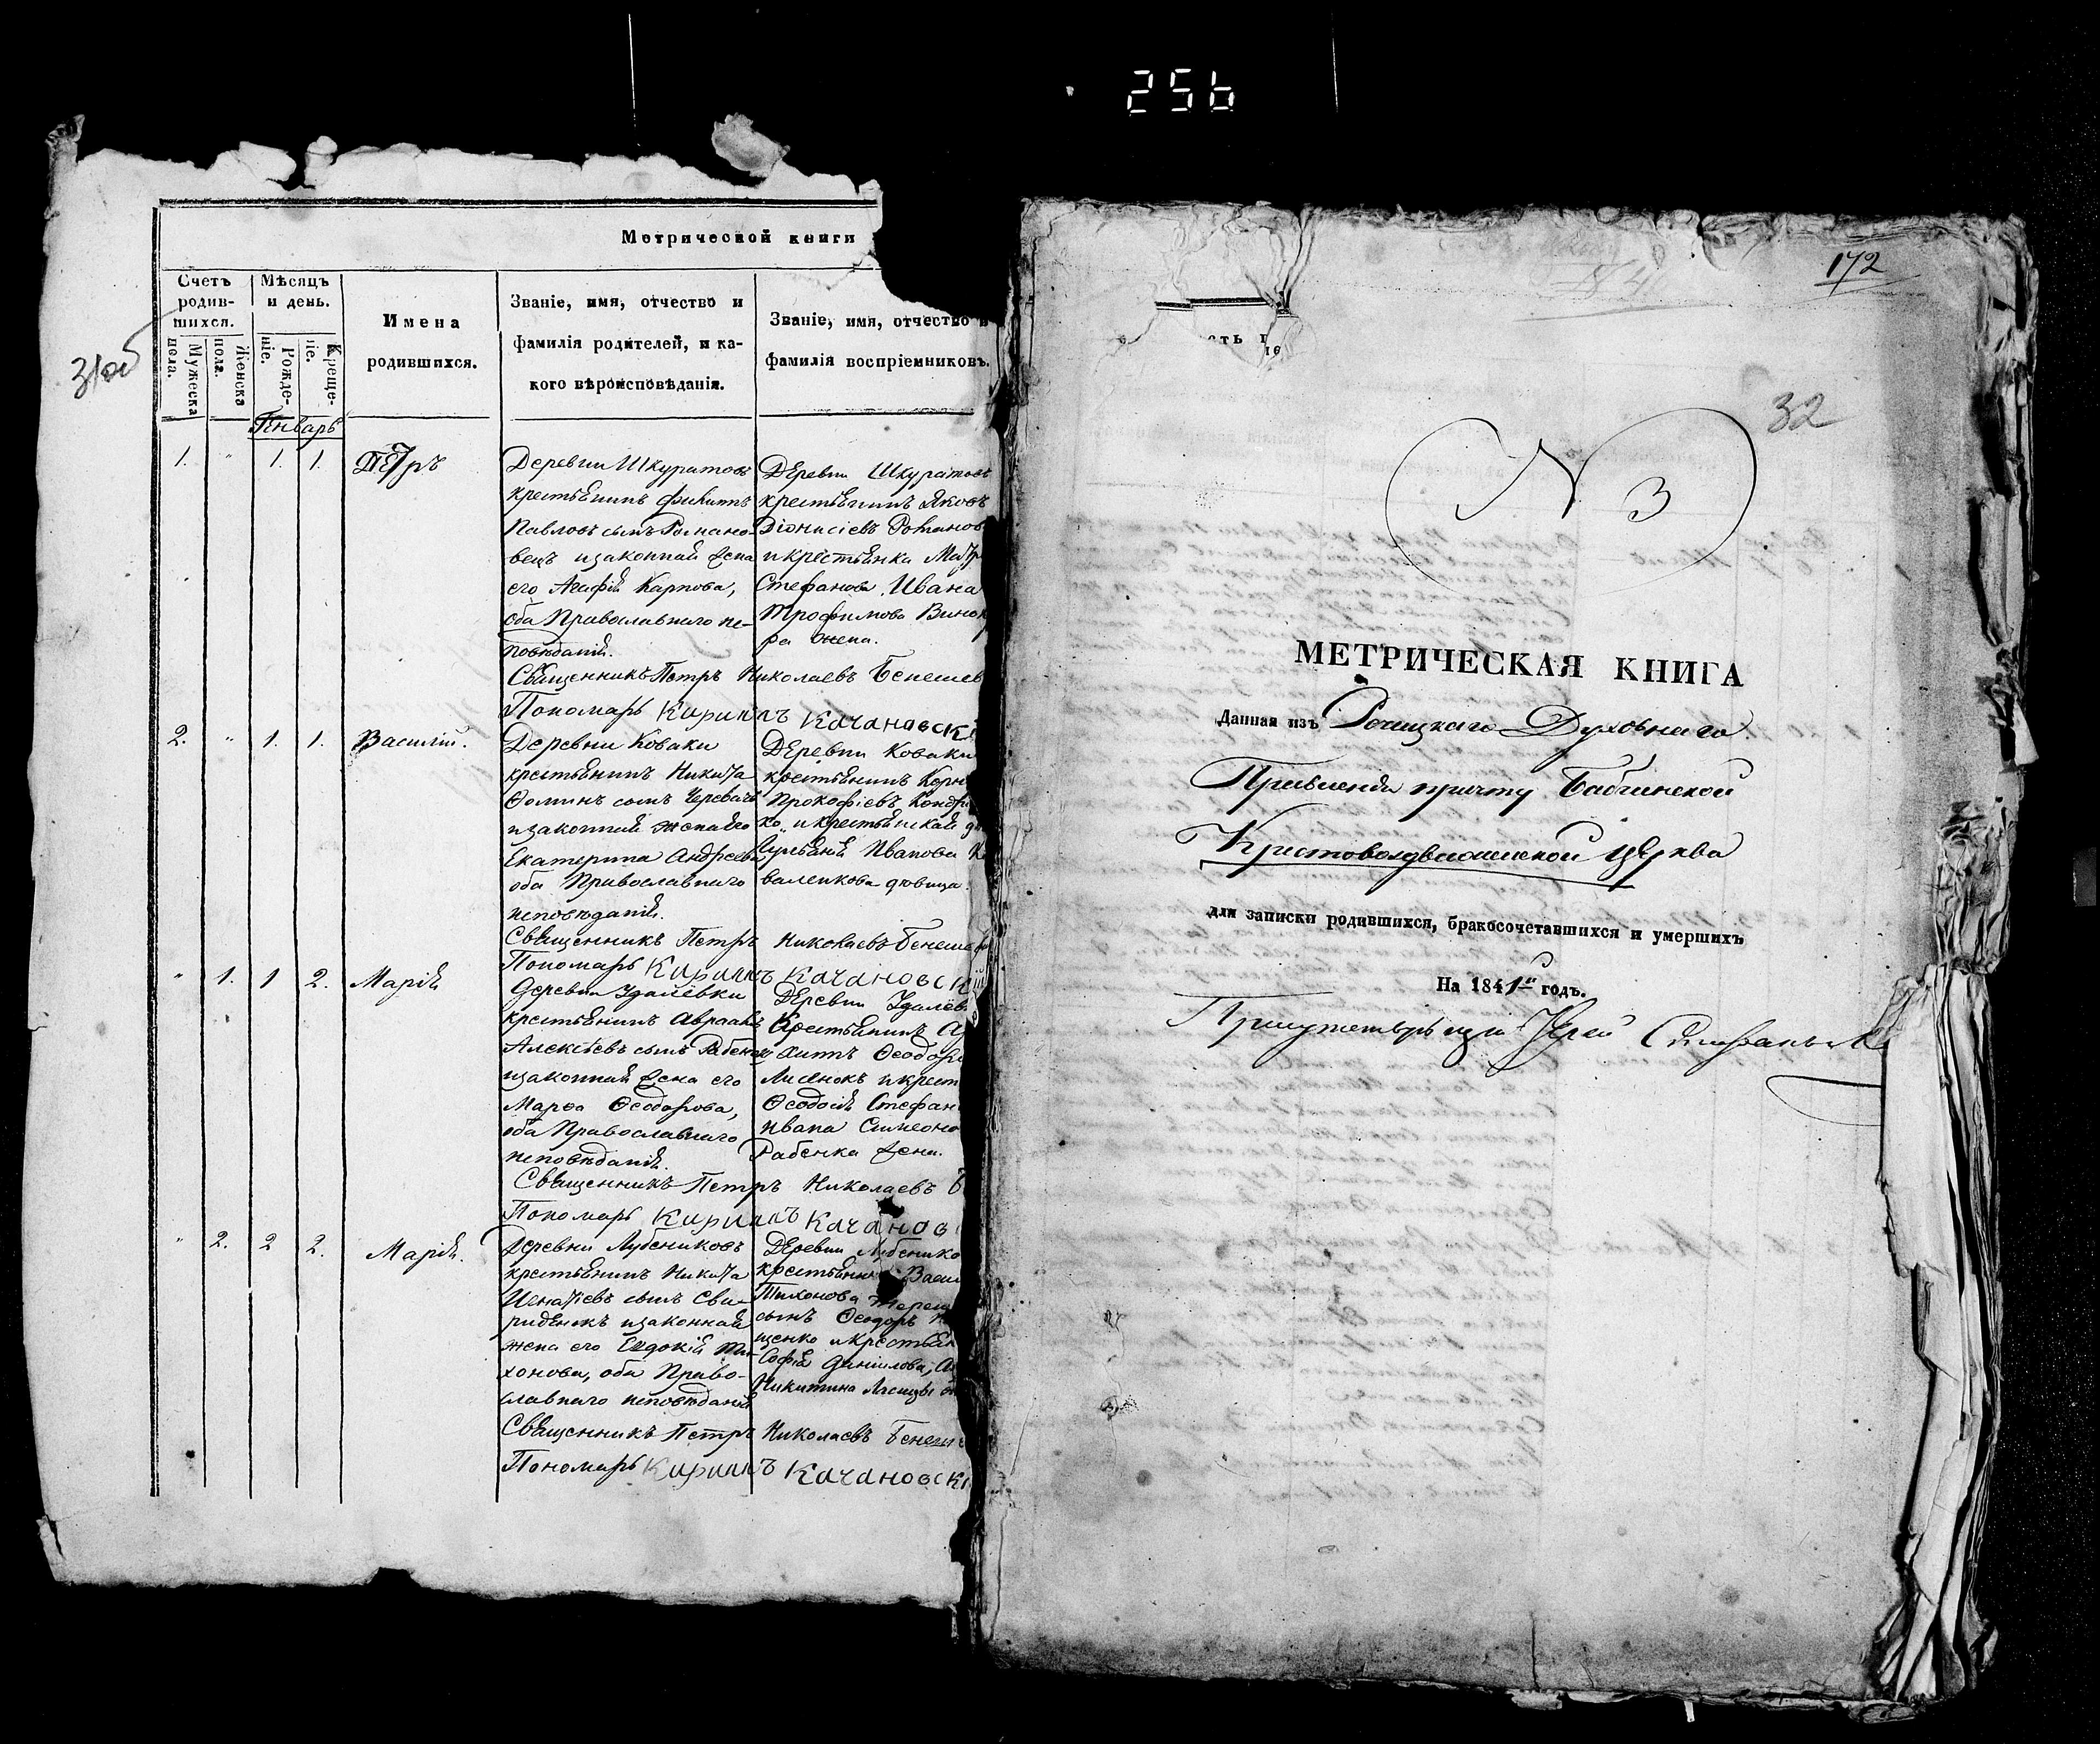 256
31об
Метрической книги
Счетъ родив-шихся.
Мужеска пола.
Женска пола.
Мѣсяцъ и день.
Рожде-ніе.
Креще-ніе.
Имена
родившихся.
Званіе, имя, отчество и
фамилія родителей, и ка-
кого вѣроисповѣданія.
Званіе, имя, отчество и
фамилія воспріемниковъ.
Январь
1. " 1. 1. Петръ
Деревни Шкуратовъ
крестьянинъ
Павловъ сынъ Романо-
вецъ и законная жена
его Агафія Карпова,
оба Православнаго ис-
повѣданія.
Деревни Шкуратовъ
крестьянинъ Яковъ
Діонисіевъ Романов
и крестьянка
Стефанова Ивана
Трофимова Винок
ра жена.
Священникъ Петръ Николаевъ
Пономарь Кириллъ Качановскі
2. " 1. 1. Василій.
Деревни Коваки
крестьянинъ Никита
Ѳоминъ сынъ
и законная жена его
Екатерина Андреева
оба Православнаго
исповѣданія.
Деревни Коваки
крестьянинъ Корн
Прокофіевъ Кондр
ко, и крестьянская
Иванова Ко
валенкова дѣвица.
Священникъ Петръ Николаевъ
Пономарь Кириллъ Качановскій
" 1. 1 2. Марія
Деревни Удалёвки
крестьянинъ Авраамъ
Алексѣевъ сынъ
и законная жена его
Марѳа Ѳеодорова,
оба Православнаго
исповѣданія.
Деревни Удалёв
Крестьянинъ
Ѳеодоро
Лисёнокъ и крест
Ѳеодосія Стефан
Ивана Симеоно
Рабенка жена.
Священникъ Петръ Николаевъ
Пономарь Кириллъ Качанов
" 2. 2 2. Марія.
Деревни Лубениковъ
крестьянинъ Никита
Игнатіевъ сынъ Сви-
ридёнокъ и законная
жена его Евдокія Ти-
хонова, оба Право-
славнаго исповѣданія
Деревни Лубенико
крестьянин Васи
Тихонова
сынъ Ѳеодоръ
щенко и крестьян
Софія Даніилова,
Никитина
Священникъ Петръ Николаевъ
Пономарь Кириллъ Качановскі
172
32
N 3
МЕТРИЧЕСКАЯ КНИГА
Данная изъ Рѣчицкаго Духовнаго
Правленія причту Бабчинской
Крестовоздвиженской церкви
для записки родившихся, бракосочетавшихся и умершихъ
На 1841й годъ.
Присутствующій Іерей